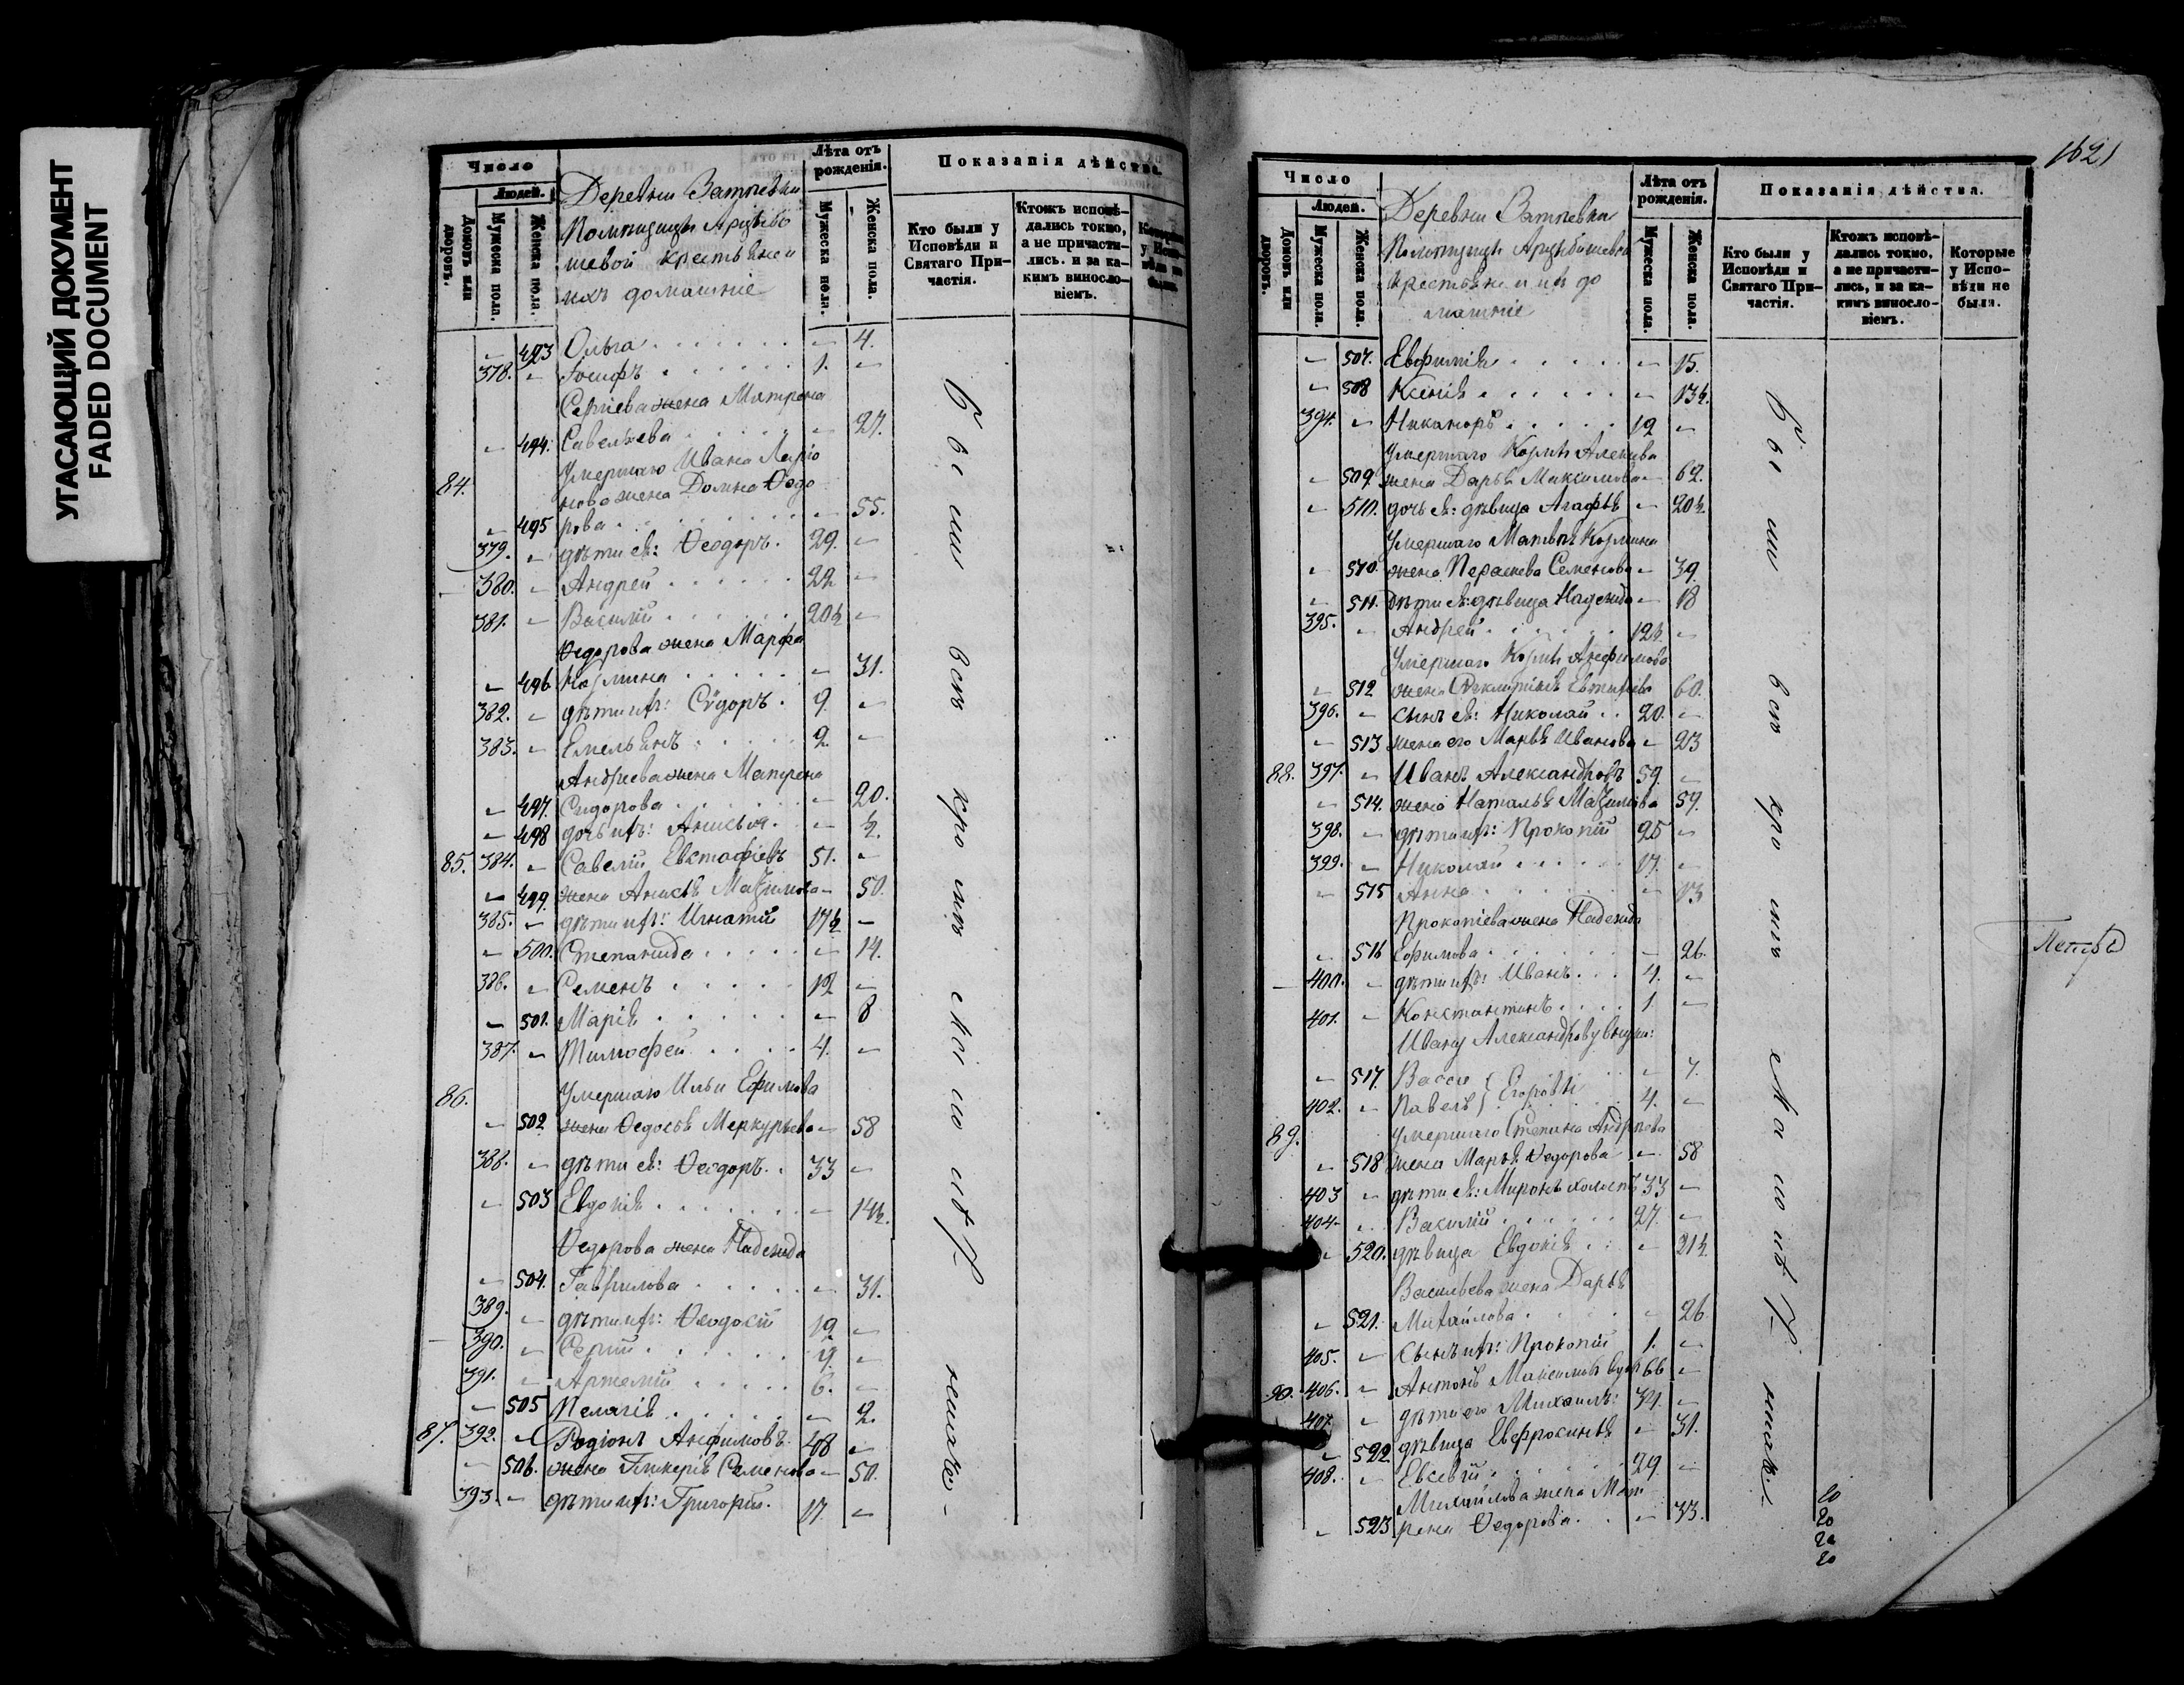 УГАСАЮЩИЙ ДОКУМЕНТ
FADED DOCUMENT
Число
Людей.
Домовъ или дворовъ.
Мужеска пола.
Женска пола.
Деревни
Помѣщицы Арцыбо
шевой крестьяне и
ихъ домашніе
Лѣта отъ рожденія.
Мужеска пола.
Женска пола.
Показанія дѣйства.
Кто были у Исповѣди и Святаго Причастія.
Ктожъ исповѣдались токмо, а не причастились. и за какимъ винословіемъ.
– 493 Ольга – 4.
378. – Іосифъ 1. –
Сергіева жена Матрона
– 494. Савельева – 27.
84. Умершаго Ивана Ларіо
нова жена Домна Ѳедо
– 495 рова – 55.
379. – дѣти ея: Ѳеодоръ. 29. –
380. – Андрей 22 –
381. – Василій 20½ –
Ѳедорова жена Марфа
– 496 Козмина – 31.
382. – дѣти ихъ: Сѵдоръ. 9. –
383. – Емельянъ 2. –
Андреева жена Матрона
– 497. Сидорова – 20.
– 498 дочь ихъ: Анисья – ½.
85. 384. – Савелій Евстафіевъ 51. –
– 499. жена Анисья Маѯимова – 50.
385. – дѣти ихъ: Игнатій 17½ –
– 500. Степанида – 14.
386. – Семенъ 12 –
– 501. Марія – 8
387. – Тимофей 4. –
86. Умершаго Ильи Ефимова
– 502 жена Ѳедосья Меркурьева – 58
388. – дѣти ея: Ѳеодоръ. 33 –
– 503 Евдокія – 14½.
Ѳедорова жена Надежда
– 504. Гаврилова – 31.
389. – дѣти ихъ: Ѳеодосій 12 –
390. – Сергій 9. –
391. – Артемій 6. –
– 505 Пелагія – 2.
87. 392. – Родіонъ Анфимовъ 48 –
– 506. жена Гликерія Семенова – 50.
393. – дѣти ихъ: Григорій. 17. –
Были всѣ кромѣ малолѣт
1621
Число
Людей.
Домовъ или дворовъ.
Мужеска пола.
Женска пола.
Деревни
Помѣщицы Арцыбашевой
крестьяне и ихъ до
машніе
Лѣта отъ рожденія.
Мужеска пола.
Женска пола.
Показанія дѣйства.
Кто были у Исповѣди и Святаго Причастія.
Ктожъ исповѣдались токмо, а не причастились, и за какимъ винословіемъ.
Которые у Исповѣди не были.
– 507. Евфимія – 15.
– 508 Ксенія – 13½.
394. – Никаноръ 12 –
Умершаго Козмы Алексѣева
– 509. жена Дарья Максимова – 62.
– 510. дочь ея: дѣвица Агафья – 20½.
Умершаго Матвѣя Козмина
– 510. жена Параскева Семенова – 39.
– 511. Дѣти ея: дѣвица Надежда – 18
395. – Андрей 12½. –
Умершаго Козмы Анфимова
– 512 жена 60.
396. – сынъ ея: Николай 20. –
– 513 жена его Марья Иванова – 23
88. 397. – Иванъ Александровъ 59. –
– 514. жена Наталья Маѯимова 59.
398. – дѣти ихъ: Прокопій 25 –
399. – Николай 17. –
– 515 Анна – 13
Прокопіева жена Надежда
– 516 Ефимова – 26.
400. – дѣти ихъ: Иванъ 4. –
401. – Константинъ 1. –
Ивану Александрову внуки:
– 517. Васса – 7.
402. – Павелъ } Егоровы 4. –
89. Умершаго Степана Андреева
– 518 жена Марья Ѳедорова – 58
403 – дѣти ея: Миронъ холостъ 33 –
404 – Василій 27. –
– 520. дѣвица Евдокія – 21½.
Васильева жена Дарья
– 521. Михайлова – 26
405. – Сынъ ихъ: Прокопій 1. –
90. 406. – Антоній Максимовъ вдовъ 66 –
407. – дѣти его Михаилъ: 34. –
– 522 дѣвица Евфросинья – 31.
408. – Евсевій 29. –
Михайлова жена Мат
– 523 рена Ѳедорова. – 33.
Были всѣ кромѣ малолѣт
20
20
20
20